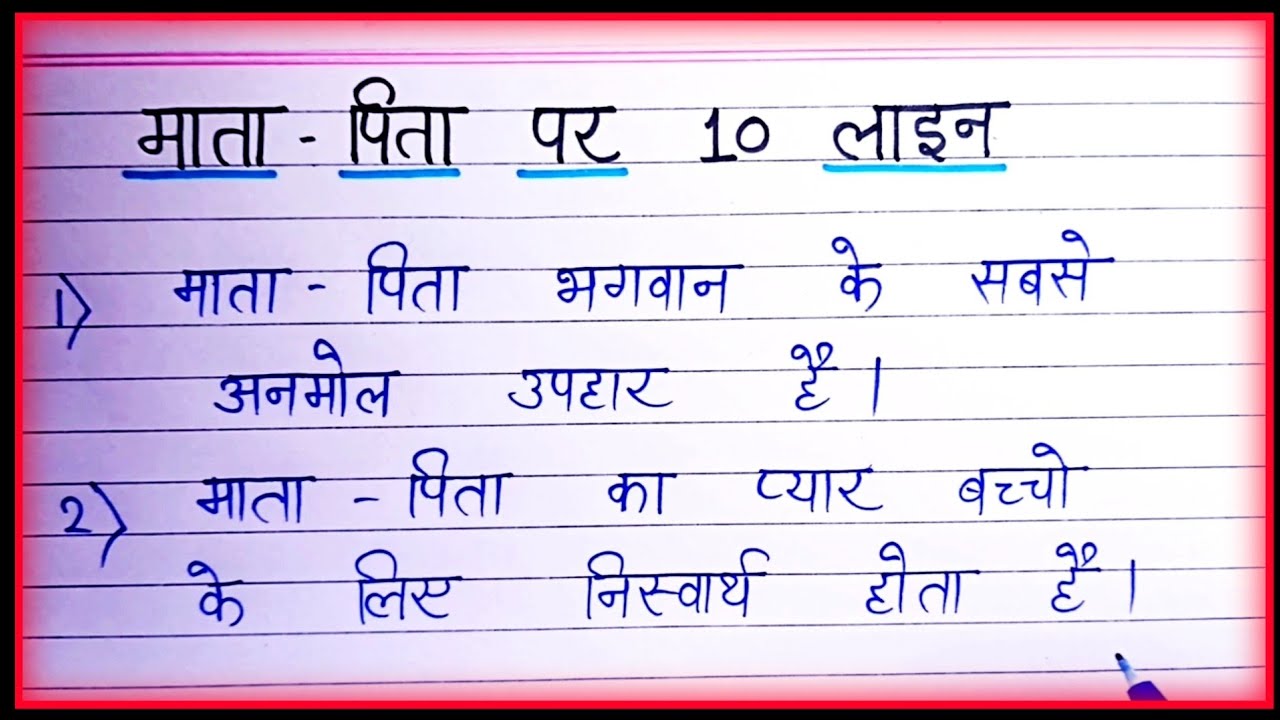 माता - पिता पर 10 लाइन
1) माता - पिता भगवान के सबसे
अनमोल उपहार है।
2) माता - पिता का प्यार बच्चो
के लिए निस्वार्थ होता है।